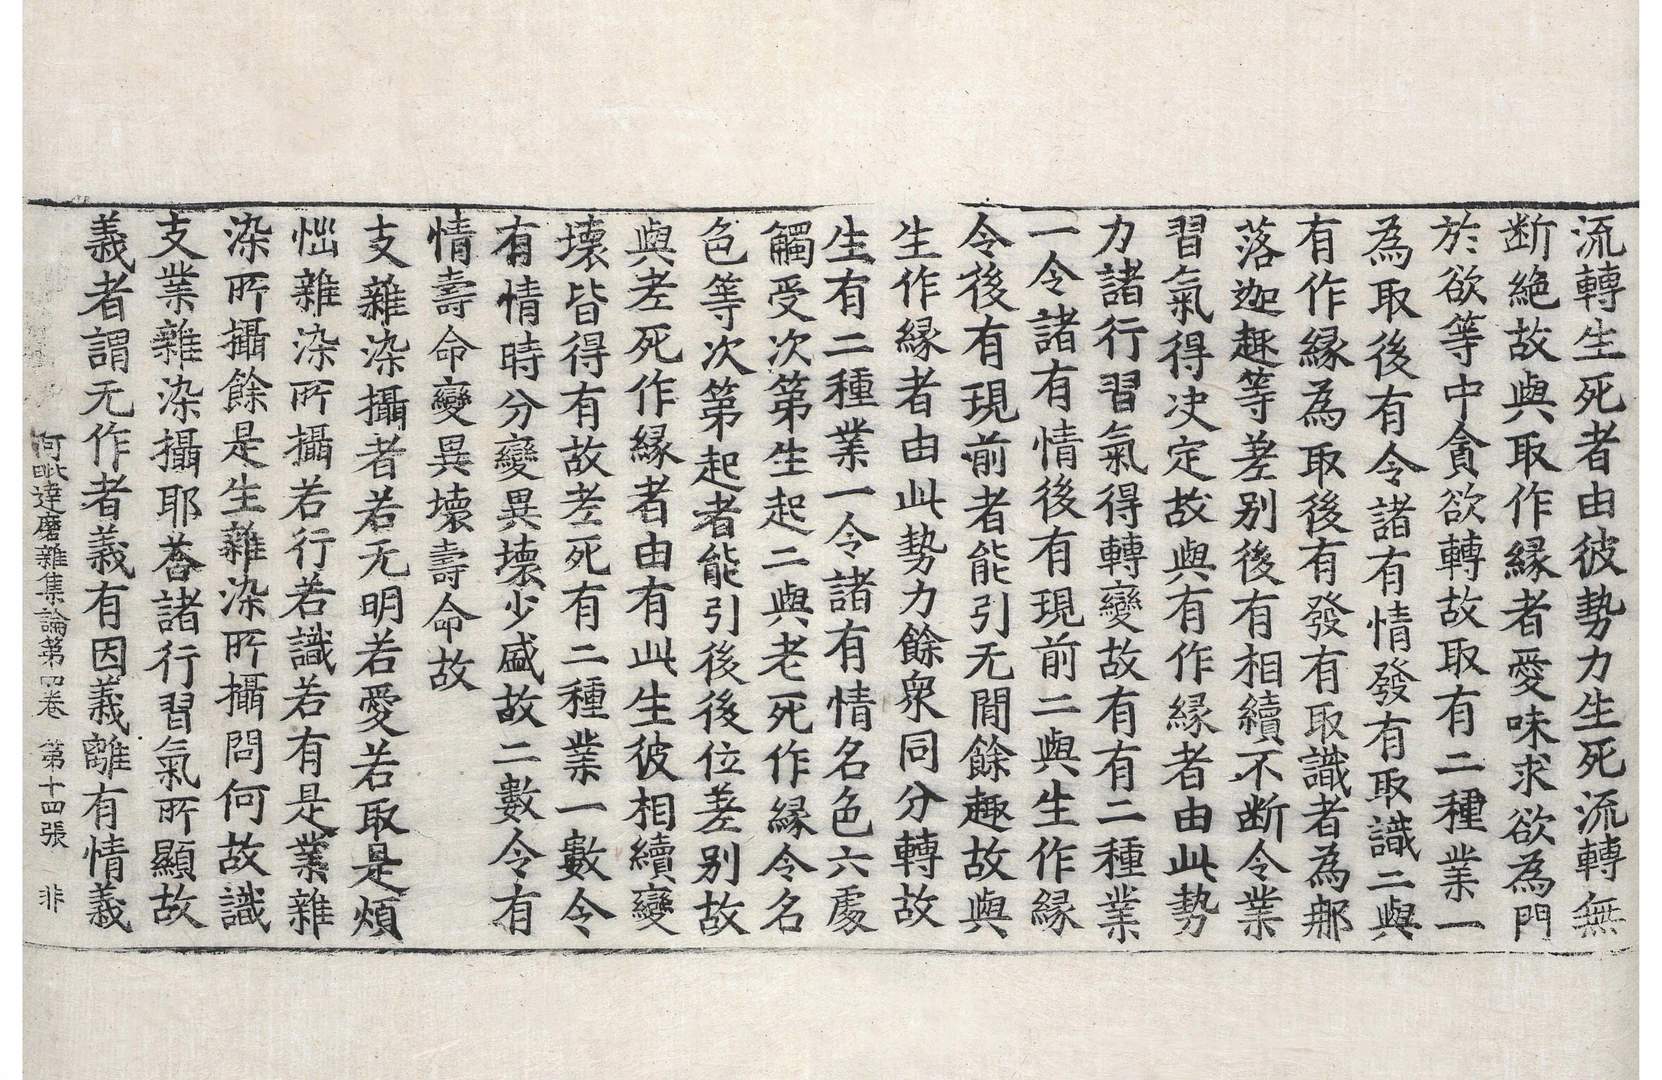 流轉生死者由彼勢力生死流轉無
断絶故與取作縁者愛味求欲為門
於欲等中貪欲轉故取有二種業一
為取後有令諸有情發有取識二與
有作縁為取後有發有取識者為那
落迦趣等差别後有相續不断令業
習氣得决定故與有作縁者由此勢
力諸行習氣得轉變故有有二種業
一令諸有情後有現前二與生作縁
令後有現前者能引无間餘趣故與
生作縁者由此勢力餘衆同分轉故
生有二種業一令諸有情名色六處
觸受次第生起二與老死作縁令名
色等次第起者能引後後位差别故
與老死作縁者由有此生彼相續變
壞皆得有故老死有二種業一數令
有情時分變異壞少盛故二數令有
情壽命變異壞壽命故
支雜染攝者若无明若愛若取是煩
惱雜染所攝若行若識若有是業雜
染所攝餘是生雜染所攝問何故識
支業雜染攝耶荅諸行習氣所顯故
義者謂无作者義有因義離有情義
阿毗達磨雜集論第四卷 第十四張 非